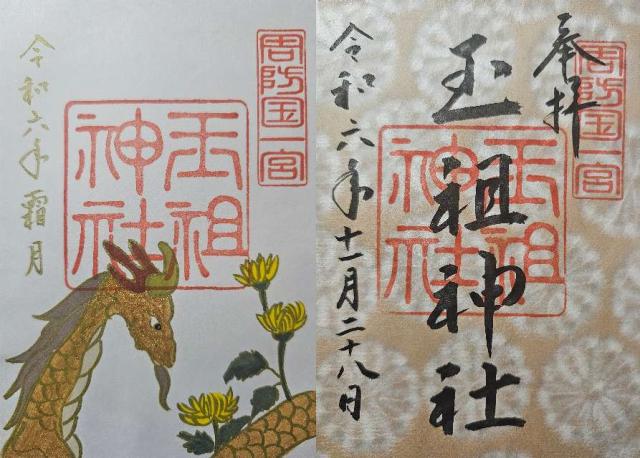 周防国一宮
玉祖神社
令和六年霜月
奉拝
周防国一宮
玉祖神社
玉祖神社
令和六年十一月二十八日